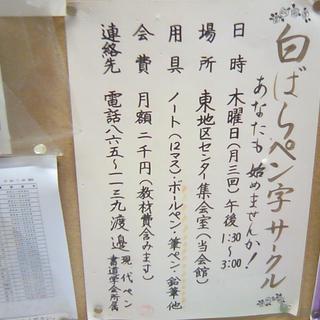 白ばらペン字サークル
あなたも始めませんか!
日時 木曜日(月三回)午後1:30〜3:00
場所 東地区センター集会室(当会館)
用具 ノート(12マス)・ボールペン・筆ペン・鉛筆他
会費 月額二千円(教材費含みます)
連絡先 電話八六五ー一一三九渡邉 現代ペン書道学会所属